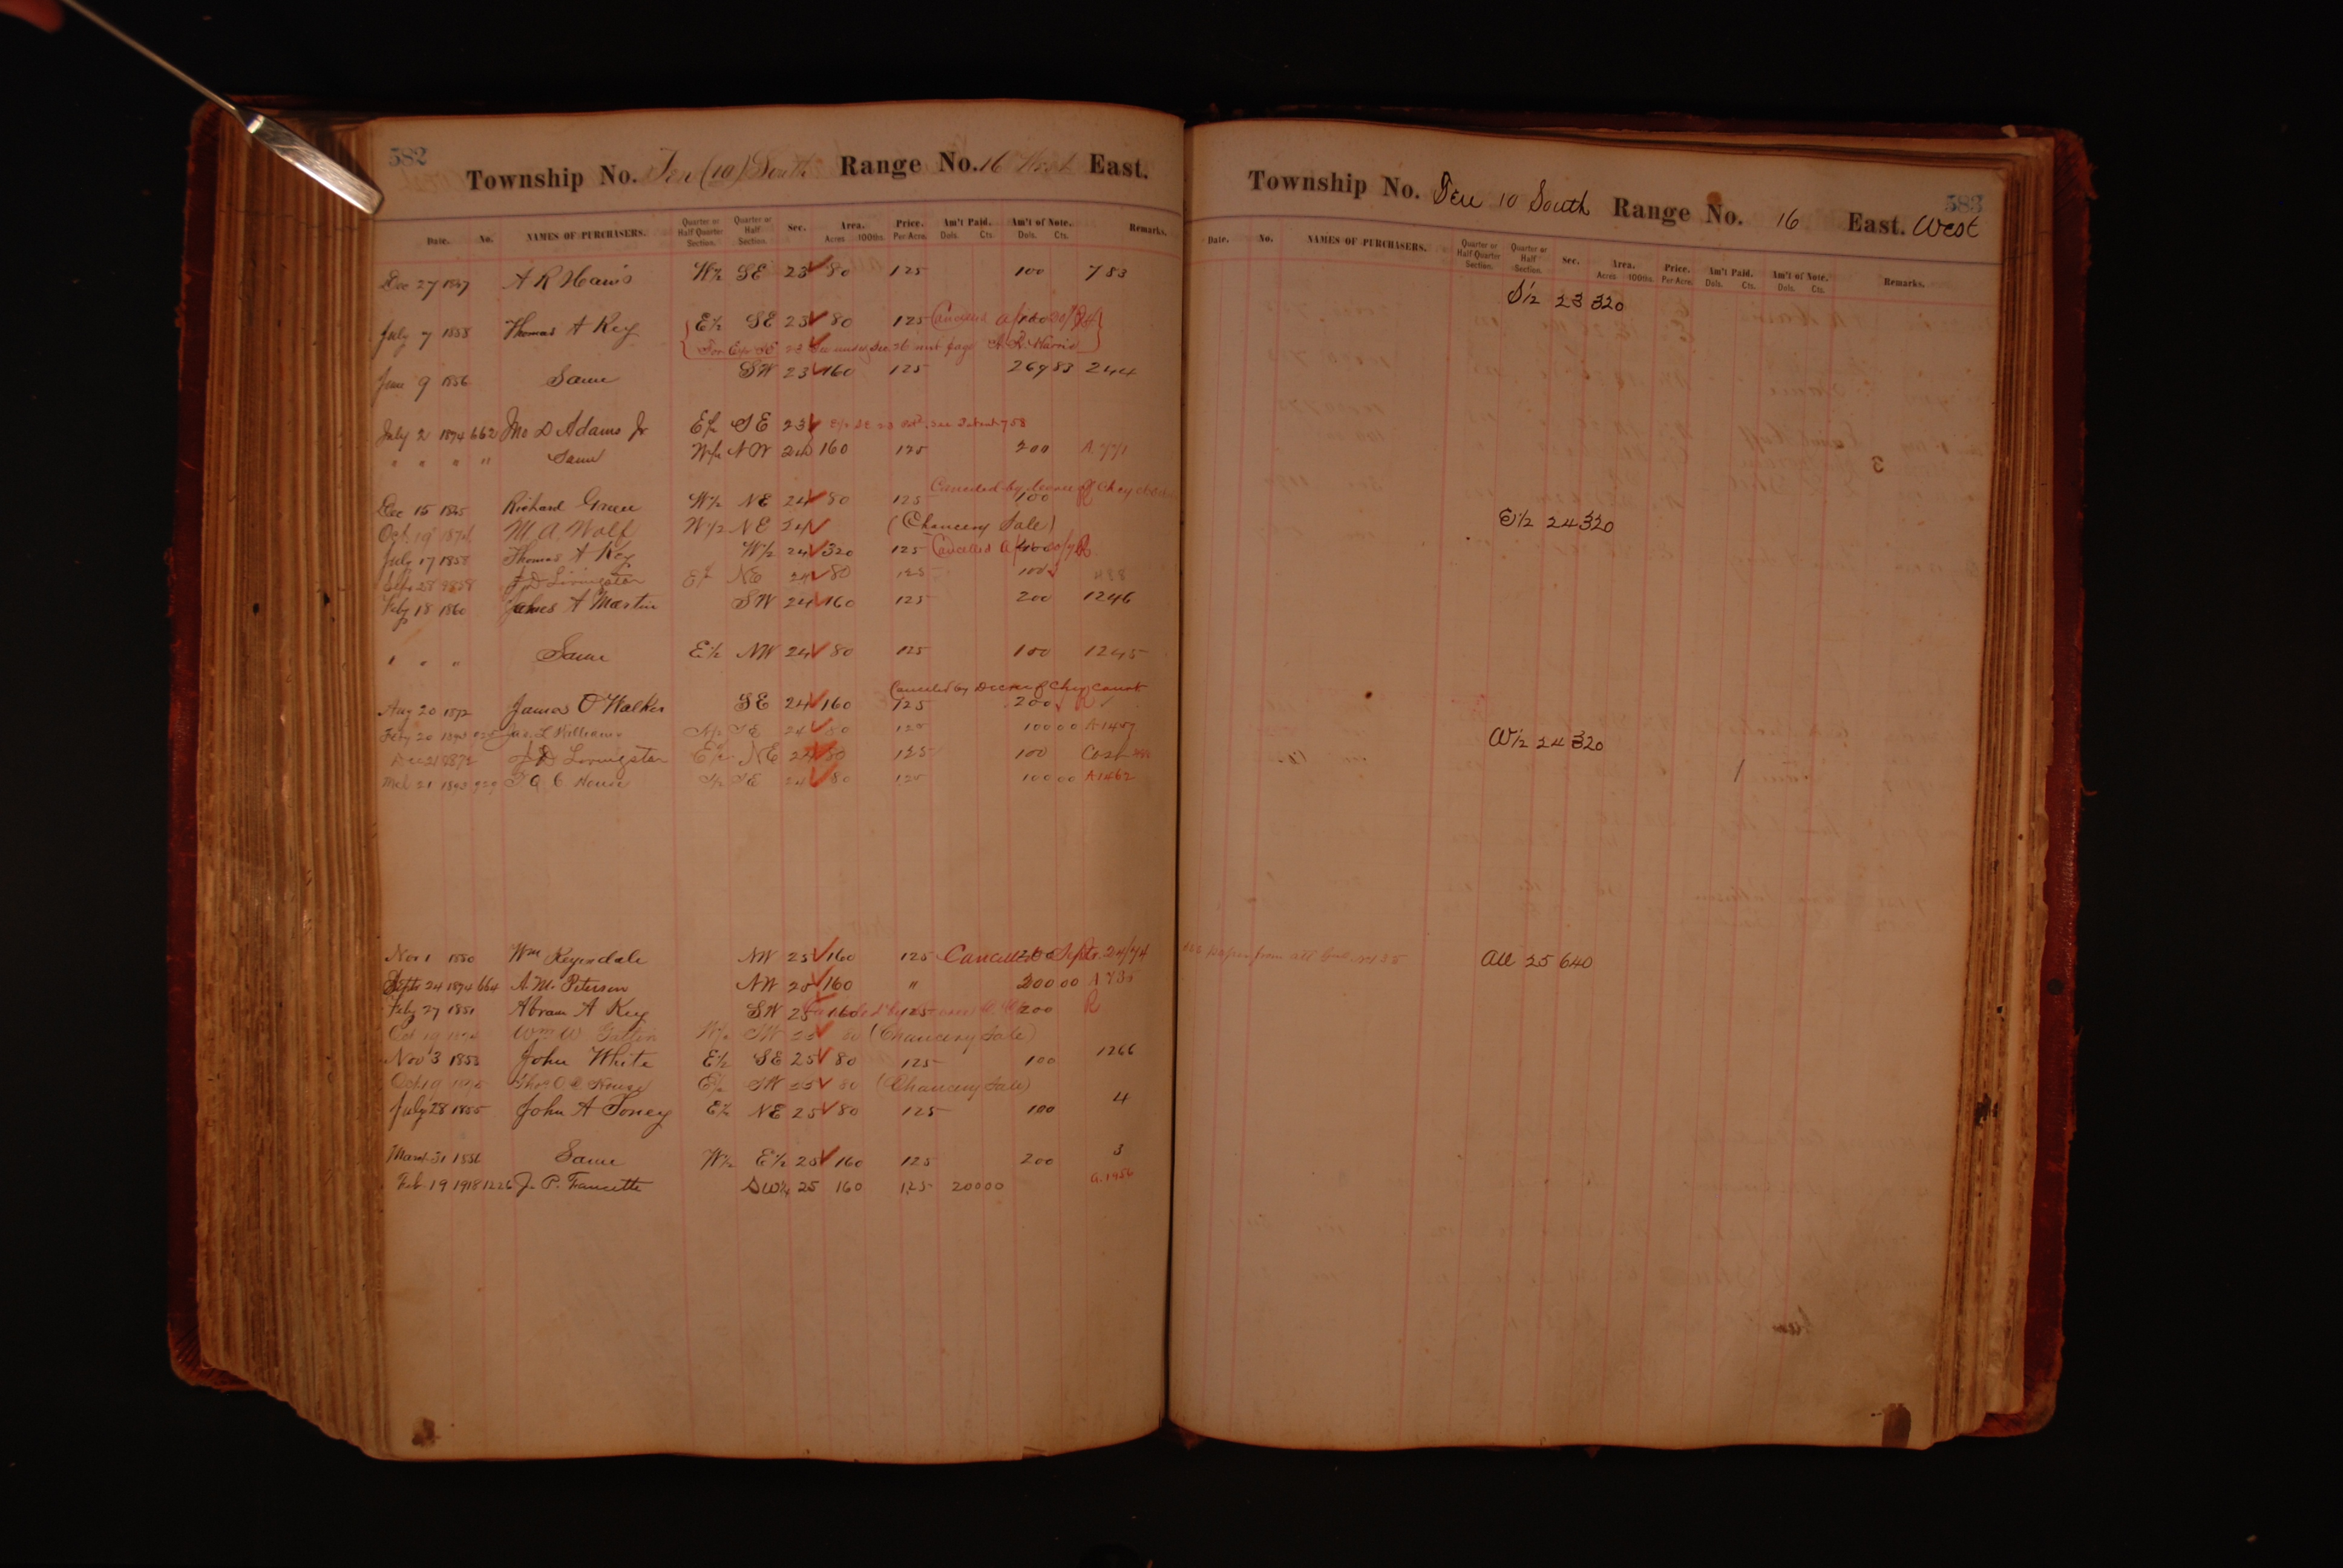 582
Township No. Ten (10) South Range No. 16 West East.
Date. No. NAMES OF PURCHASERS. Quarter or Half Quarter Section. Quarter or Half Section. Sec. Area. Acres 100ths. Price. Per Acre. Am't Paid. Dols. Cts. Am't of Note. Dols. Cts. Remarks.
Dec 27 1847 A R Harris W½ SE 23 80 125 100 783
July 7 1858 Thomas A Key E½ SE 23 80 125 Cancelled 100
For E½ SE 23 See under Sec. 26 next page A. R. Harris
June 9 1856 Same SW 23 160 125 26983 244
July 2 1874 662 Jno D Adams Jr E½ SE 23
" " " " Same W½ NW 24 160 125 200 A. 771
Dec 15 1865 Richard Green W½ NE 24 80 125 Canceled by decree of Chcy 100
Oct 19 1874 M. A. Wolf W½ NE 24 (Chancery Sale)
July 17 1858 Thomas A Key W½ 24 320 125 Cancelled 400 R
Sept 28 J D Livingston E½ NE 24 80 125 100
Feby 18 1860 James A Martin SW 24 160 125 200 1246
" " " Same E½ NW 24 80 125 100 1245
Canceled by Decree of Chcy Court
Aug 20 1872 James O Walker SE 24 160 125 200 R
Feby 20 1893 925 Jas. L Williams N½ SE 24 80 125 10000 A1457
J D Livingston E½ NE 24 80 125 100
Mch 21 1893 929 T Q C House S½ SE 24 80 125 10000 A1462
Nov 1 1850 Wm Keysdale NW 25 160 125 Cancelled 200 Sept. 24/74
Sept 24 1874 664 A. M. Peterson NW 25 160 " 20000 A 735
Feby 27 1851 Abram A Key SW 25 160 125 200 R
Oct 19 1874 Wm W Gatlin W½ SW 25 80 (Chancery Sale)
Nov 3 1853 John White E½ SE 25 80 125 100 1266
Oct 19 Thos. Q. C. House E½ SW 25 80 (Chancery Sale)
July 28 1855 John A Toney E½ NE 25 80 125 100 4
March 31 1856 Same W½ E½ 25 160 125 200 3
Feb. 19 1918 1226 J. P. Faucette SW¼ 25 160 1.25 20000 A. 1956
583
Township No. Ten 10 South Range No. 16 East. West
Date. No. NAMES OF PURCHASERS. Quarter or Half Quarter Section. Quarter or Half Section. Sec. Area. Acres 100ths. Price. Per Acre. Am't Paid. Dols. Cts. Am't of Note. Dols. Cts. Remarks.
S½ 23 320
E½ 24 320
W½ 24 320
All 25 640